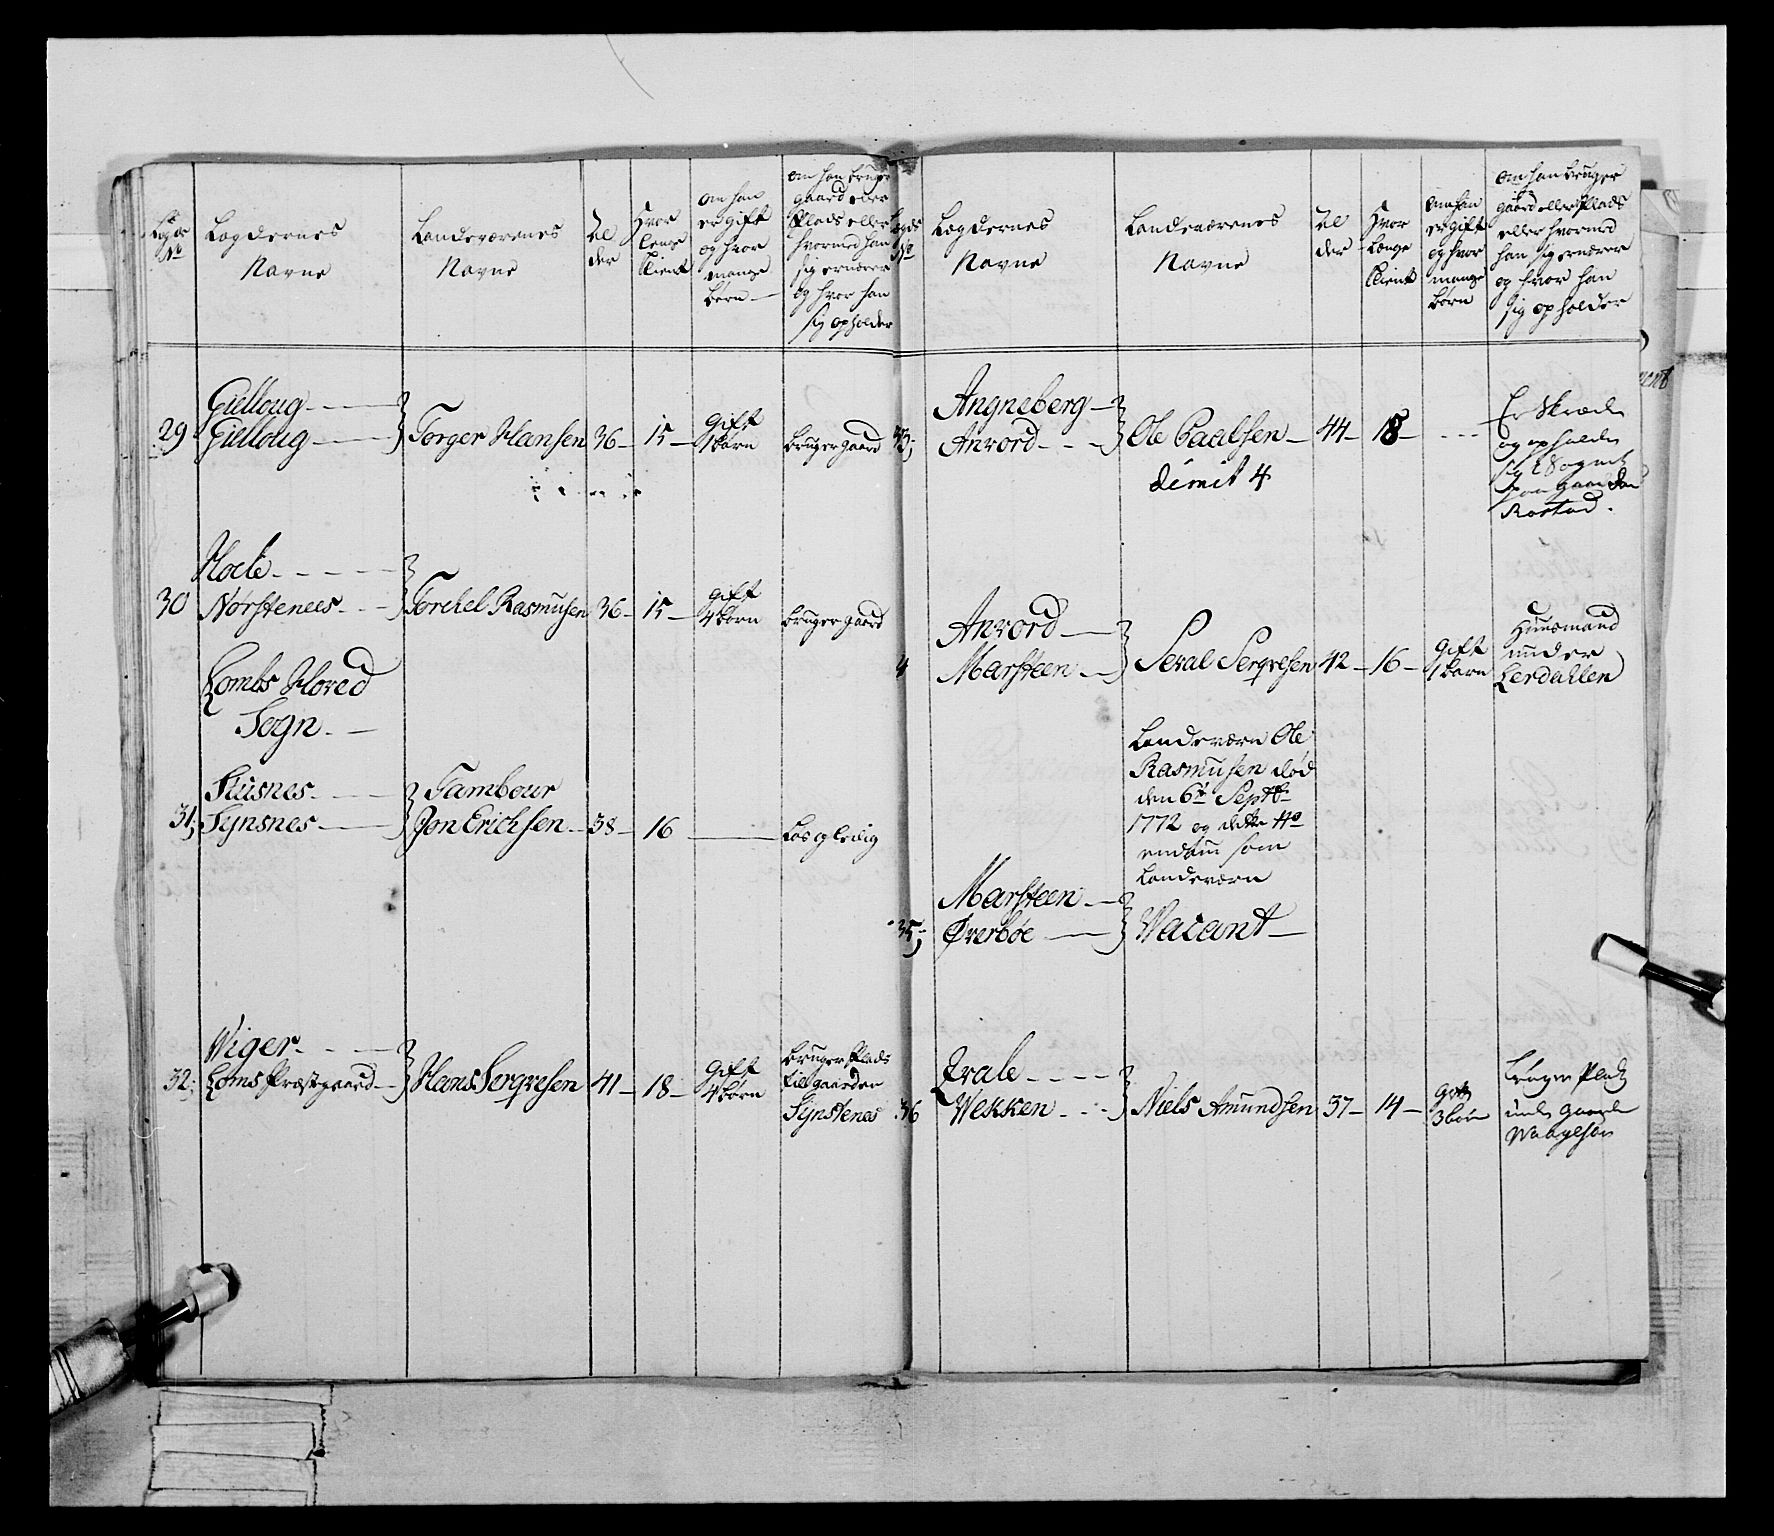 Lægdernes
Navne
Landeværenes
Navne
Al
der
Hvor
længe
tient
om han
er gift
og hvor
mange
børn
om han bruger
gaard eller
Plads eller
hvormed han
sig ernærer
og hvor han
sig opholder
29
Gielloug
Gielloug
Torger Hansen
36
15
Gift
1 barn
bruger gaard
30
Hoele
Nørstenees
Torckel Rasmusen
36
15
gift
4 børn
bruger gaard
Lombs Hoved
Sogn
31
Skusnes
Synsnes
Tambour
Jon Erichsen
38
16
Løs og ledig
32
Wiger
Loms Præstgaard
Hans Serqvesen
41
18
Gift
4 børn
bruger Plads
til gaarden
Synstenes
Lægds
No
Lægdernes
Navne
Landeværenes
Navne
Al
der
Hvor
længe
tient
om han
er gift
og hvor
mange
børn
om han bruger
gaard eller Plads
eller hvormed
han sig ernærer
og hvor han
sig opholder
33
Angneberg
Anvord
Ole Paalsen
dimit 4
44
18
Er Skræder
og opholder
sig i Sognet
paa gaarden
4
Anvord
Marsteen
Sexal Serqvesen
42
16
Gift
1 barn
Huusmand
under
Lerdahlen
Landeværn Ole
Rasmusen død
den 6te Septbr
1772 og dette No
endnu som
Landeværn
35
Marsteen
Øverbøe
Vacant
36
Wekken
Niels Amundsen
37
14
gift
3 børn
bruger Plads
under gaarden